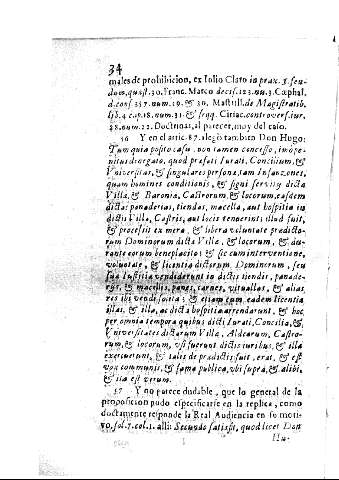 34
males de prohibicion, ex Iulio Claro in prax. §. feu-
dum, quæst. 30. Franc. Marco decis. 123. nu. 3. Cæphal.
d. cons. 357. num. 29. & 30. Mastrill. de Magistratib.
lib. 4. cap. 18. num. 31. & seqq. Ciriac. controvers. iur.
48. num. 22. Doctrinas, al parecer, muy del caso.
56 Y en el artic. 87. alegò tambien Don Hugo:
Tum quia posito casu, non tamen concesso, imo pe-
nitus derogato, quod præfati Iurati, Concilium, &
Universitas, & singulares personæ, tam Infanzones,
quam homines conditionis, & signi servitij dictæ
Villæ, & Baroniæ, Castrorum, & locorum, easdem
dictas panaderias, tiendas, macella, aut hospitia in
dictis Villa, Castris, aut locis tenuerint; illud fuit,
& processit ex mera, & libera voluntate prædicto-
rum Dominorum dictæ Villæ, & locorum, & du-
rante eorum beneplacito; & sic cum interventione,
voluntate, & licentia dictorum Dominorum, seu
sua Iustitia vendiderunt in dictis tiendis, panade-
rijs, & macellis, panes, carnes, vitualias, & alias
res ibi vendi solitas; & etiam cum eadem licentia
illas, & illa, ac dicta hospitia arrendarunt, & hoc
per omnia tempora quibus dicti Iurati, Concilia, &
Universitates dictarum Villæ, Aldearum, Castro-
rum, & locorum, usi fuerunt dictis iuribus, & illa
exercuerunt, & tale de prædictis fuit, erat, & est
vox communis, & fama publica, ubi supra, & alibi,
& ita est verum.
57 Y no parece dudable, que lo general de la
proposicion pudo especificarse en la replica, como
doctamente responde la Real Audiencia en su moti-
vo, fol. 7. col. 1. alli: Secundo satisfit, quod licet Don
Hu-